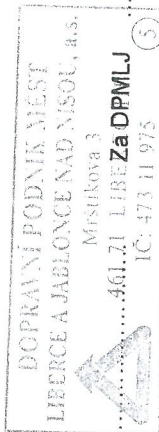 DOPRAVNÍ PODNIK MĚST
LIBERCE A JABLONCE NAD NISOU, a.s.
Mrštíkova 3
461 71 LIBEREC
Za DPMLJ
IČ: 473 11 975
5